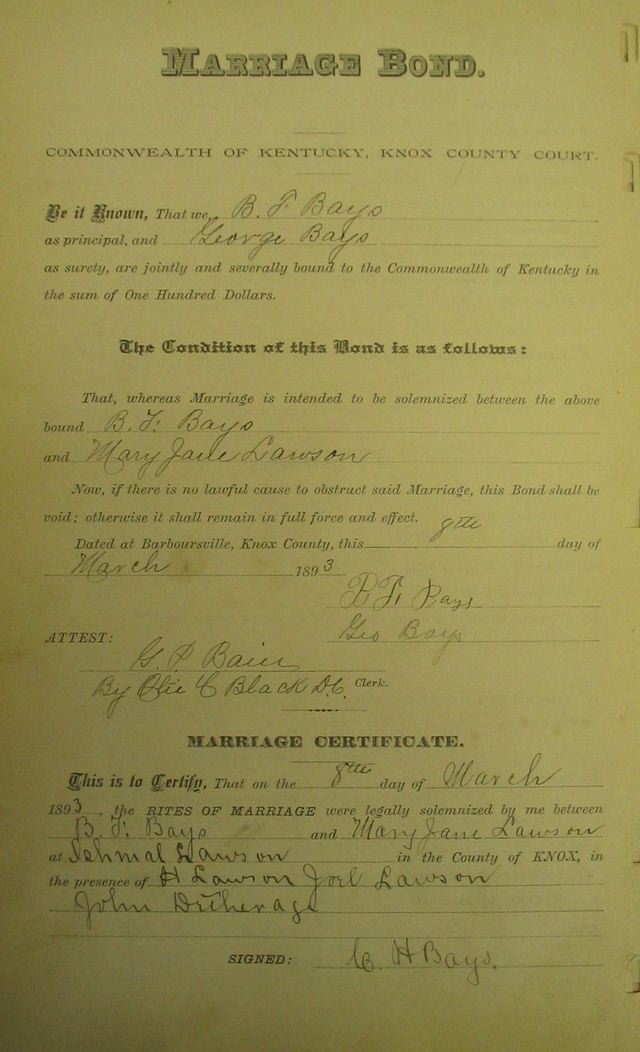 MARRIAGE BOND.
COMMONWEALTH OF KENTUCKY, KNOX COUNTY COURT.
Be it Known, That we, B. F. Bays
as principal, and George Bays
as surety, are jointly and severally bound to the Commonwealth of Kentucky in
the sum of One Hundred Dollars.
The Condition of this Bond is as follows:
That, whereas Marriage is intended to be solemnized between the above
bound B. F. Bays
and Mary Jane Lawson
Now, if there is no lawful cause to obstruct said Marriage, this Bond shall be
void; otherwise it shall remain in full force and effect.
Dated at Barboursville, Knox County, this 8th day of
March 1893
B. F. Bays
Geo Bays
ATTEST:
G. P. Bain
By Olie C Black D.C. Clerk.
MARRIAGE CERTIFICATE.
This is to Certify, That on the 8th day of March
1893, the RITES OF MARRIAGE were legally solemnized by me between
B. F. Bays and Mary Jane Lawson
at Lawson in the County of KNOX, in
the presence of H Lawson Joel Lawson
John
SIGNED: C. H Bays.